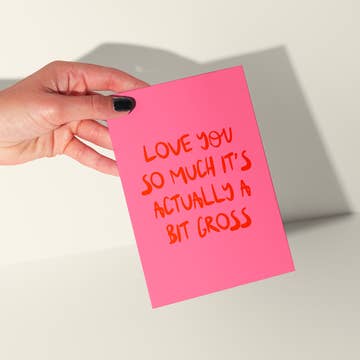 LOVE YOU
SO MUCH IT'S
ACTUALLY A
BIT GROSS